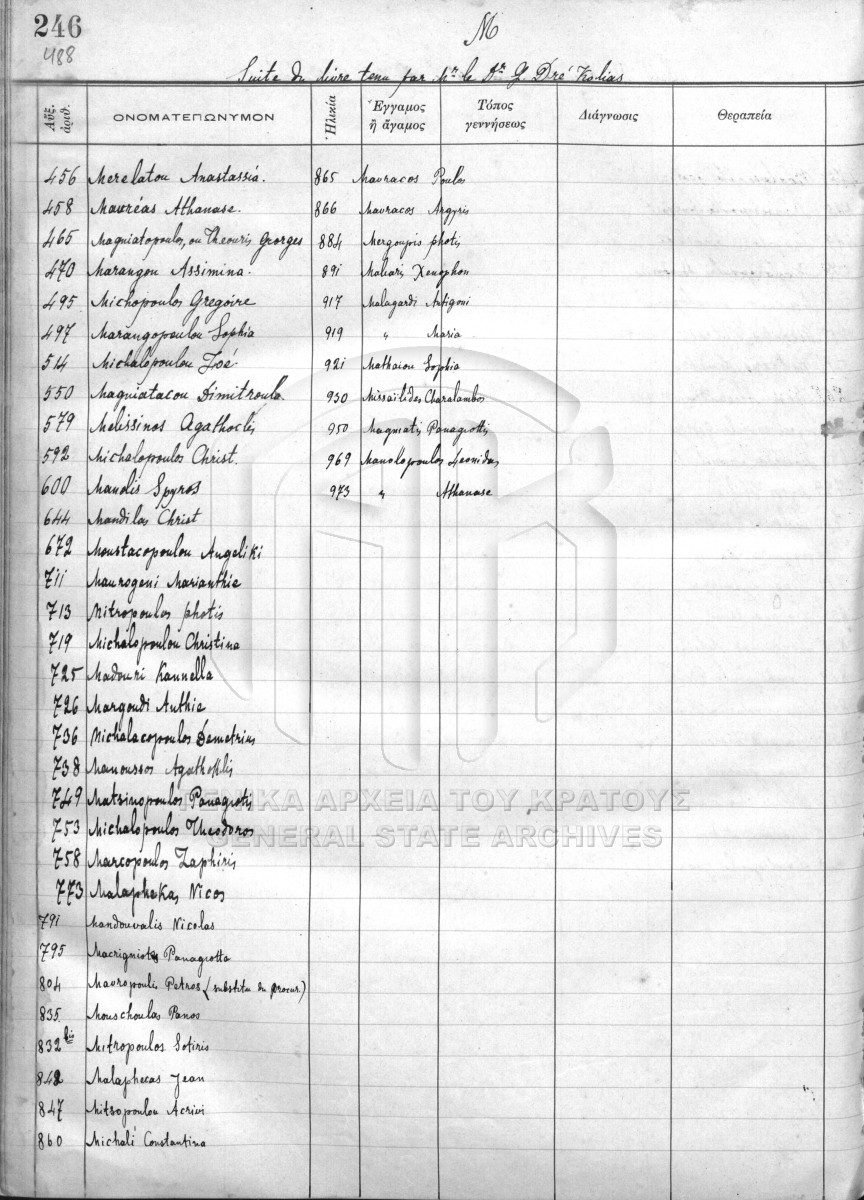 246
488
M
Suite du livre tenu par Mr le Dr G. Dré Kolias
Αὔξ. ἀριθ.
ΟΝΟΜΑΤΕΠΩΝΥΜΟΝ
Ἡλικία
Ἔγγαμος ἢ ἄγαμος
Τόπος γεννήσεως
Διάγνωσις
Θεραπεία
456 Merelatou Anastassia.
458 Mauréas Athanase.
465 Magniatopoulos, ou Theouris Georges
470 Marangou Assimina.
495 Michopoulos Gregoire
497 Marangopoulou Sophia
514 Michalopoulou Zoé
550 Magniatacou Dimitroula
579 Melissinos Agathoclis
592 Michalopoulos Christ.
600 Manolis Spyros
644 Mandilas Christ
672 Moustacopoulou Angeliki
711 Maurogeni Marianthie
713 Mitropoulos photis
719 Michalopoulou Christina
725 Madouri Kannella
726 Margoudi Anthie
736 Michalacopoulos Demetrius
738 Manoussos Agathoklis
749 Matsinopoulos Panagioti
753 Michalopoulos Theodoros
758 Marcopoulos Zaphiris
773 Malaphekas Nicos
791 Mandouvalis Nicolas
795 Macrigniotis Panagiotta
804 Mavropoulis Petros (substitu du procur.)
835 Mouschoulas Panos
832 bis Mitropoulos Sotiris
842 Malaphecas Jean
847 Mitsopoulou Acrivi
860 Michali Constantina
865 Mavracos Poulos
866 Mavracos Argyris
884 Mergoupis photis
891 Maliaris Xenophon
917 Malagardi Antigoni
919 " Maria
921 Mathaiou Sophia
930 Missailides Charalambos
950 Magniatis Panagiottis
969 Manolopoulos Leonidas
973 " Athanase
ΓΕΝΙΚΑ ΑΡΧΕΙΑ ΤΟΥ ΚΡΑΤΟΥΣ
GENERAL STATE ARCHIVES